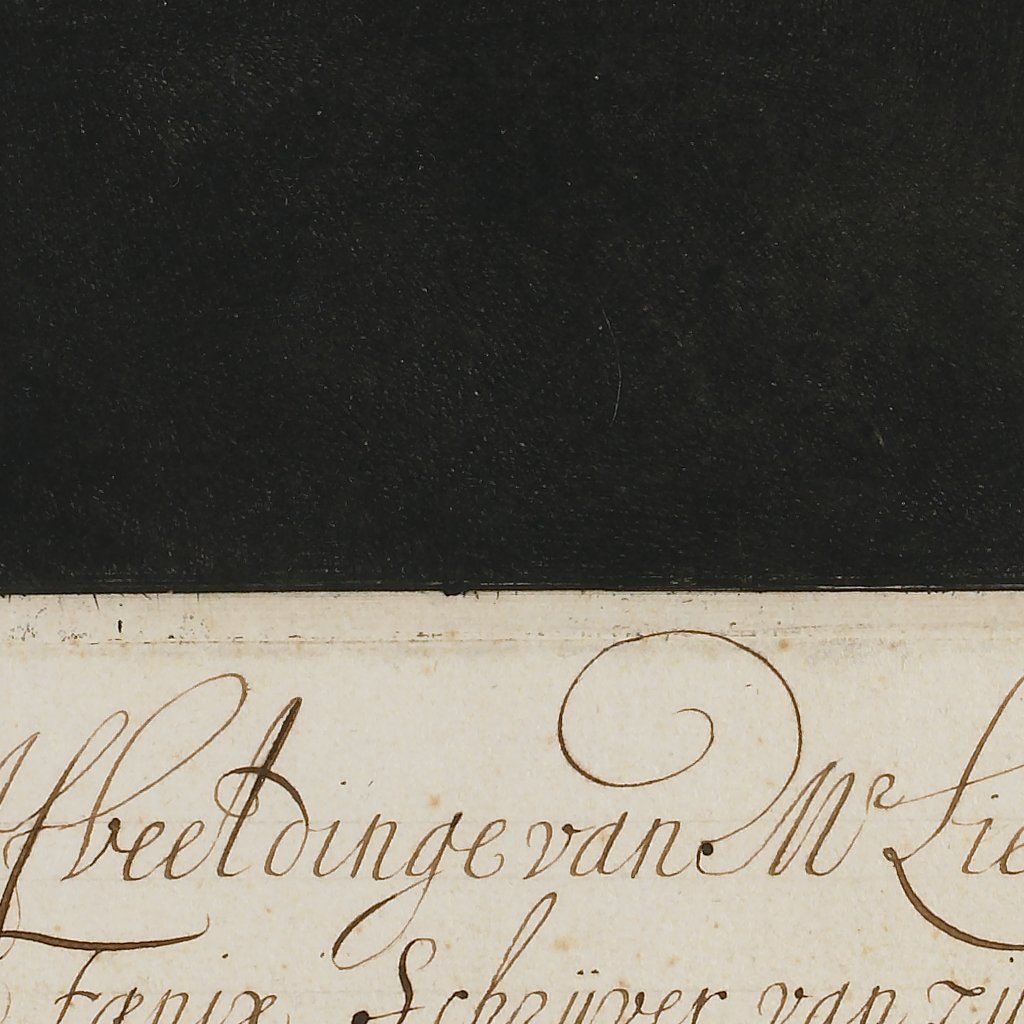 Afbeeldinge van Mr Lie
Fœnix Schrijver van zij